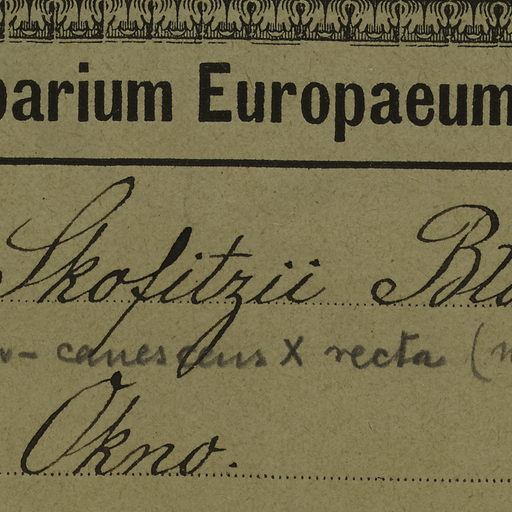 barium Europaeum
Skofitzii Blo
canescens X recta (n
Okno.